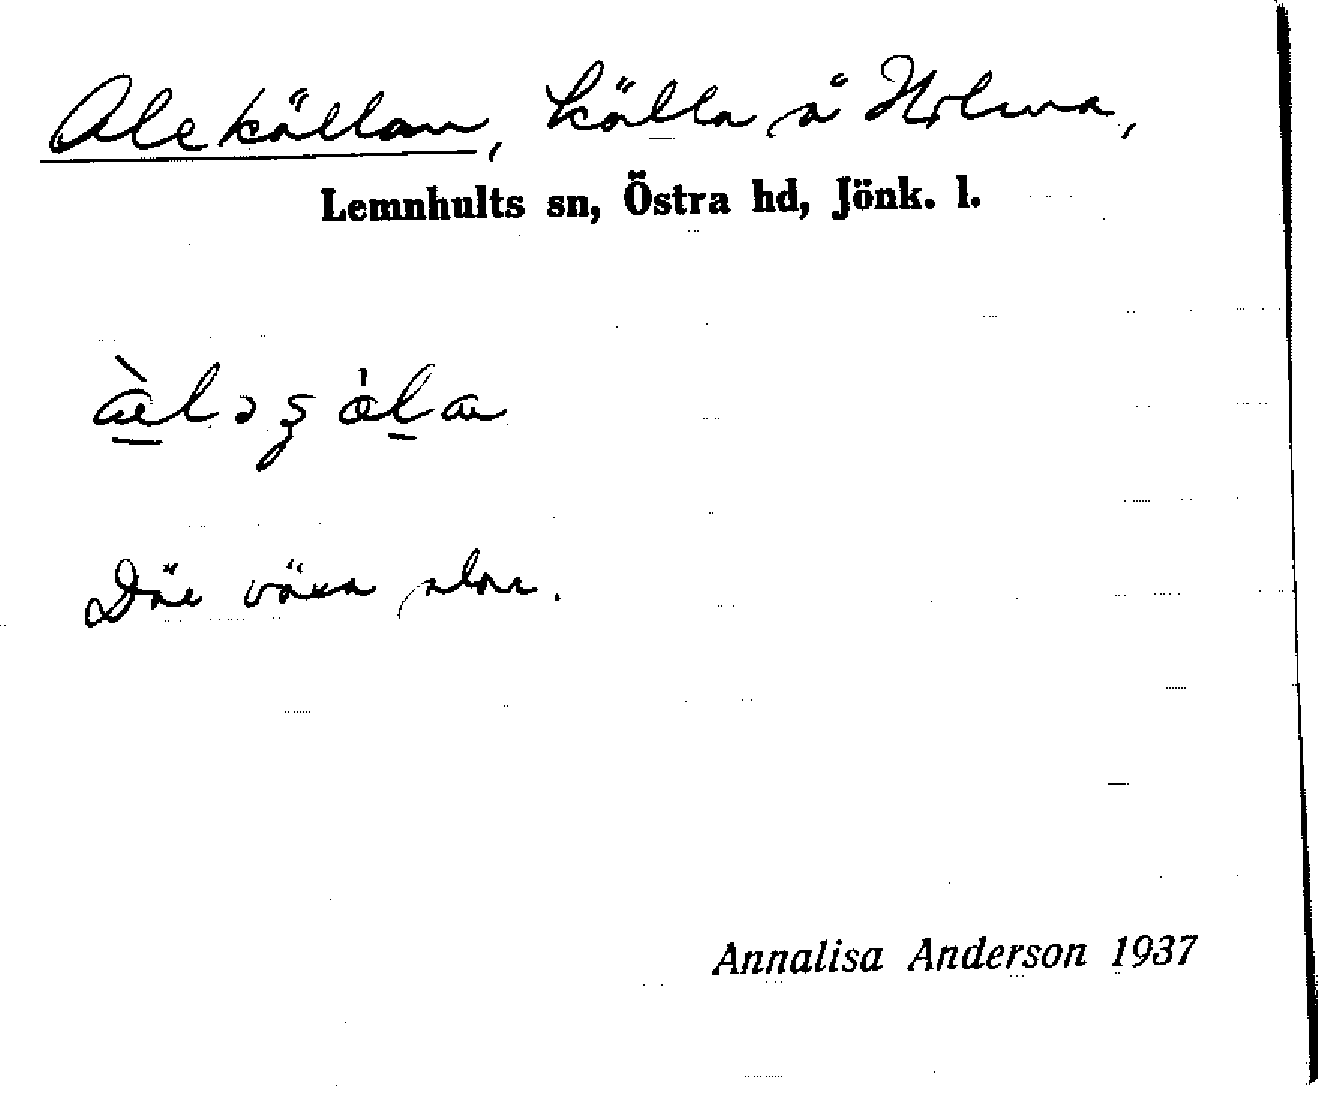 Alekällan, källa å Holma,
Lemnhults sn, Östra hd, Jönk. l.
Där växa alar.
Annalisa Anderson 1937